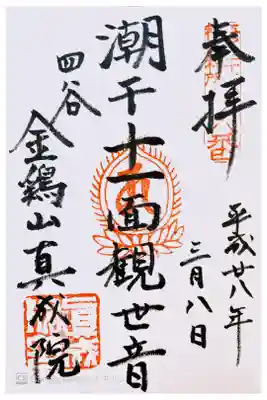 奉拝
平成廿八年
三月八日
潮干十一面観世音
四谷
金鶏山真成院